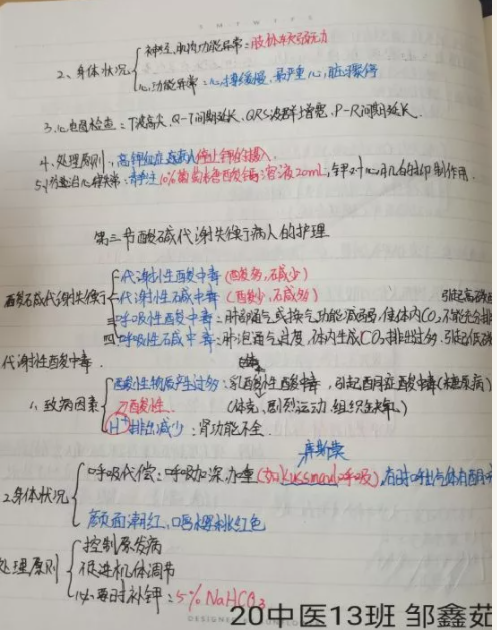 2、身体状况
神经、肌肉功能异常：肢体软弱无力
心功能异常：心搏缓慢、最严重心脏骤停
3、心电图检查：T波高尖、Q-T间期延长、QRS波群增宽、P-R间期延长
4、处理原则：高钾血症病人停止钾的摄入
5、防治心律失常：静注10%葡萄糖酸钙溶液20mL，钾对心肌的抑制作用
第三节 酸碱代谢失衡病人的护理
酸碱代谢失衡
一代谢性酸中毒（酸多，碱少）
代谢性碱中毒（酸少，碱多）
三呼吸性酸中毒：肺部通气或换气功能减弱，使体内CO₂不能完全排
四呼吸性碱中毒：肺泡通气过度，体内生成CO₂排出过多，引起低碳
引起高碳
代谢性酸中毒
1、致病因素
酸性物质产生过多：乳酸性酸中毒，引起酮症酸中毒（糖尿病）
酸性
（休克、剧烈运动、组织缺氧）
H⁺排出减少：肾功能不全
库斯莫
2、身体状况
呼吸代偿：呼吸加深加重（如Kussmaul呼吸），有时呼出气体有酮
颜面潮红，口唇樱桃红色
处理原则
控制原发病
促进机体调节
必要时补钾：5% NaHCO₃
20中医13班 邹鑫茹